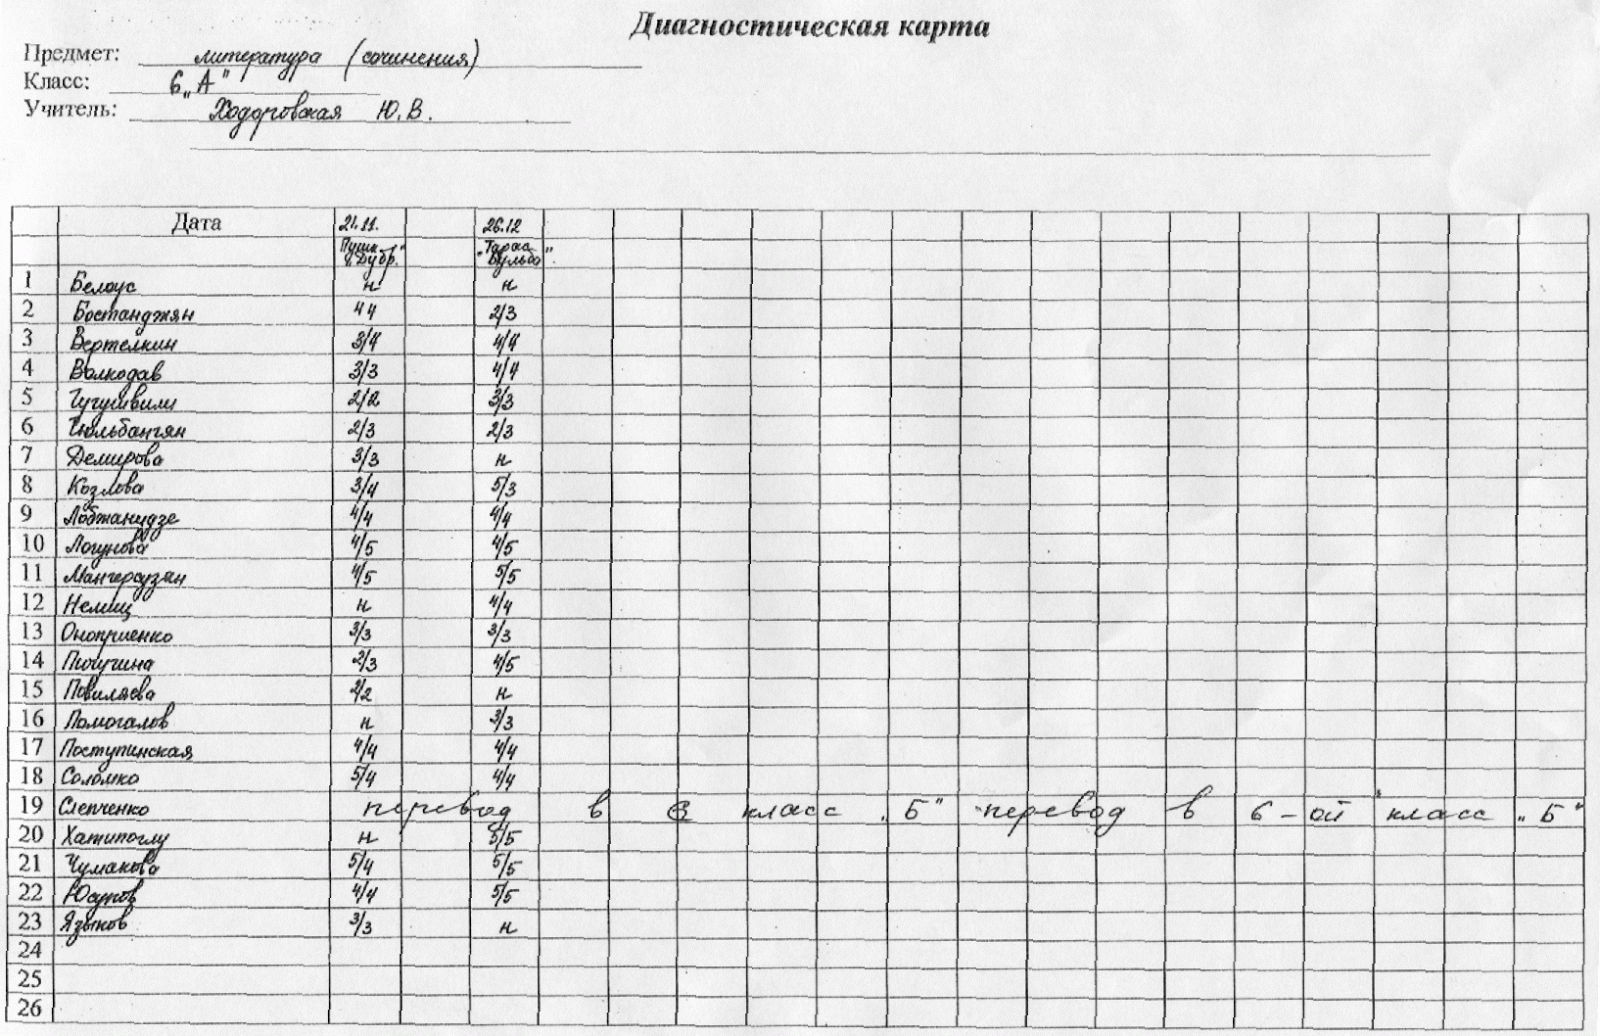 Диагностическая карта
Предмет: литература (сочинения)
Класс: 6 „А"
Учитель: Ходоровская Ю.В.
Дата 21.11. 26.12
Пушк. „Дубр." „Тарас Бульба".
1 Белоус н н
2 Бостанджян 44 2/3
3 Вертелкин 3/4 4/4
4 Волкодав 3/3 4/4
5 Гугушвили 2/2 3/3
6 Гюльбангян 2/3 2/3
7 Демирова 3/3 н
8 Козлова 3/4 5/3
9 Лобжанидзе 4/4 4/4
10 Логунова 4/5 4/5
11 4/5 5/5
12 Немиц н 4/4
13 Оноприенко 3/3 3/3
14 Пичугина 2/3 4/5
15 Повиляева 2/2 н
16 Помогалов н 3/3
17 Поступинская 4/4 4/4
18 Соломко 5/4 4/4
19 Слепченко перевод в 6 класс „Б" перевод в 6-ой класс „Б"
20 Хатипоглу н 5/5
21 Чумакова 5/4 5/5
22 Юсупов 4/4 5/5
23 Языков 3/3 н
24
25
26